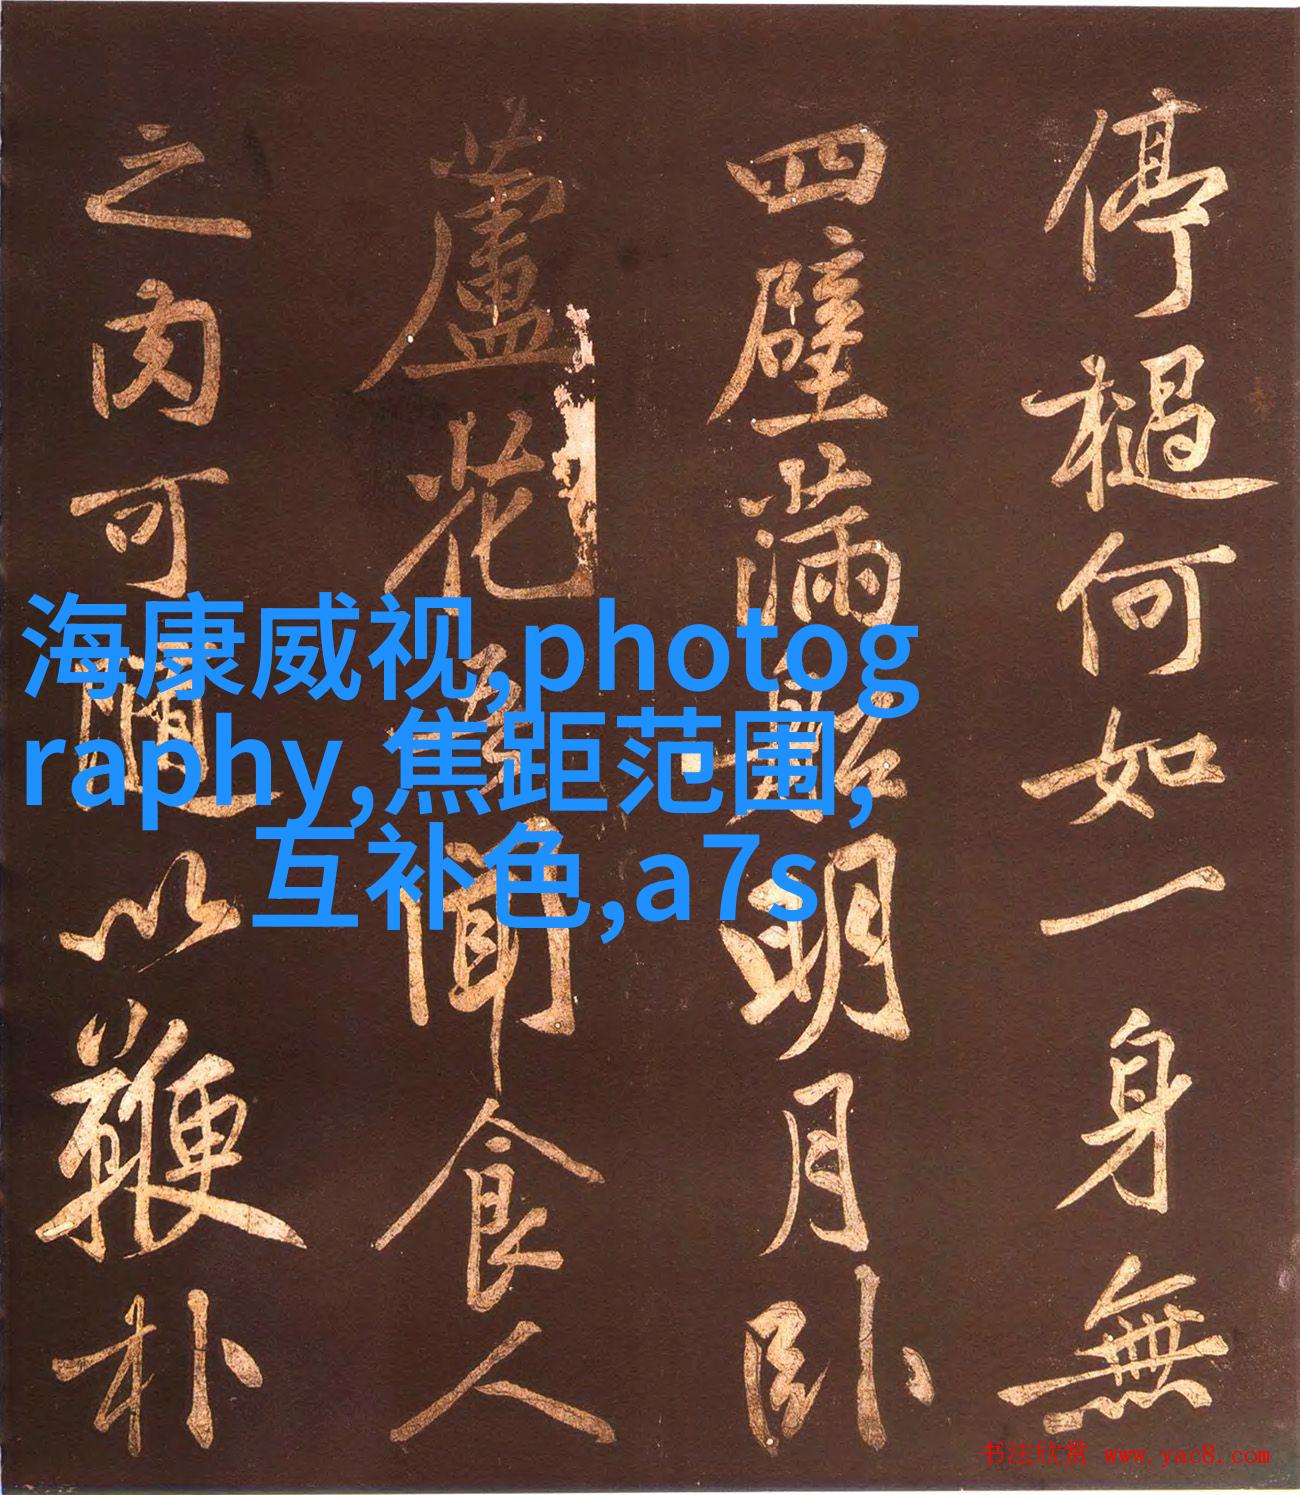 停檛何如一身無
四壁滿船明月臥
蘆花吾聞食人
之肉可隨以鞭朴
海康威视,photog
raphy,焦距范围,
互补色,a7s
书法欣赏 www.yac8.com